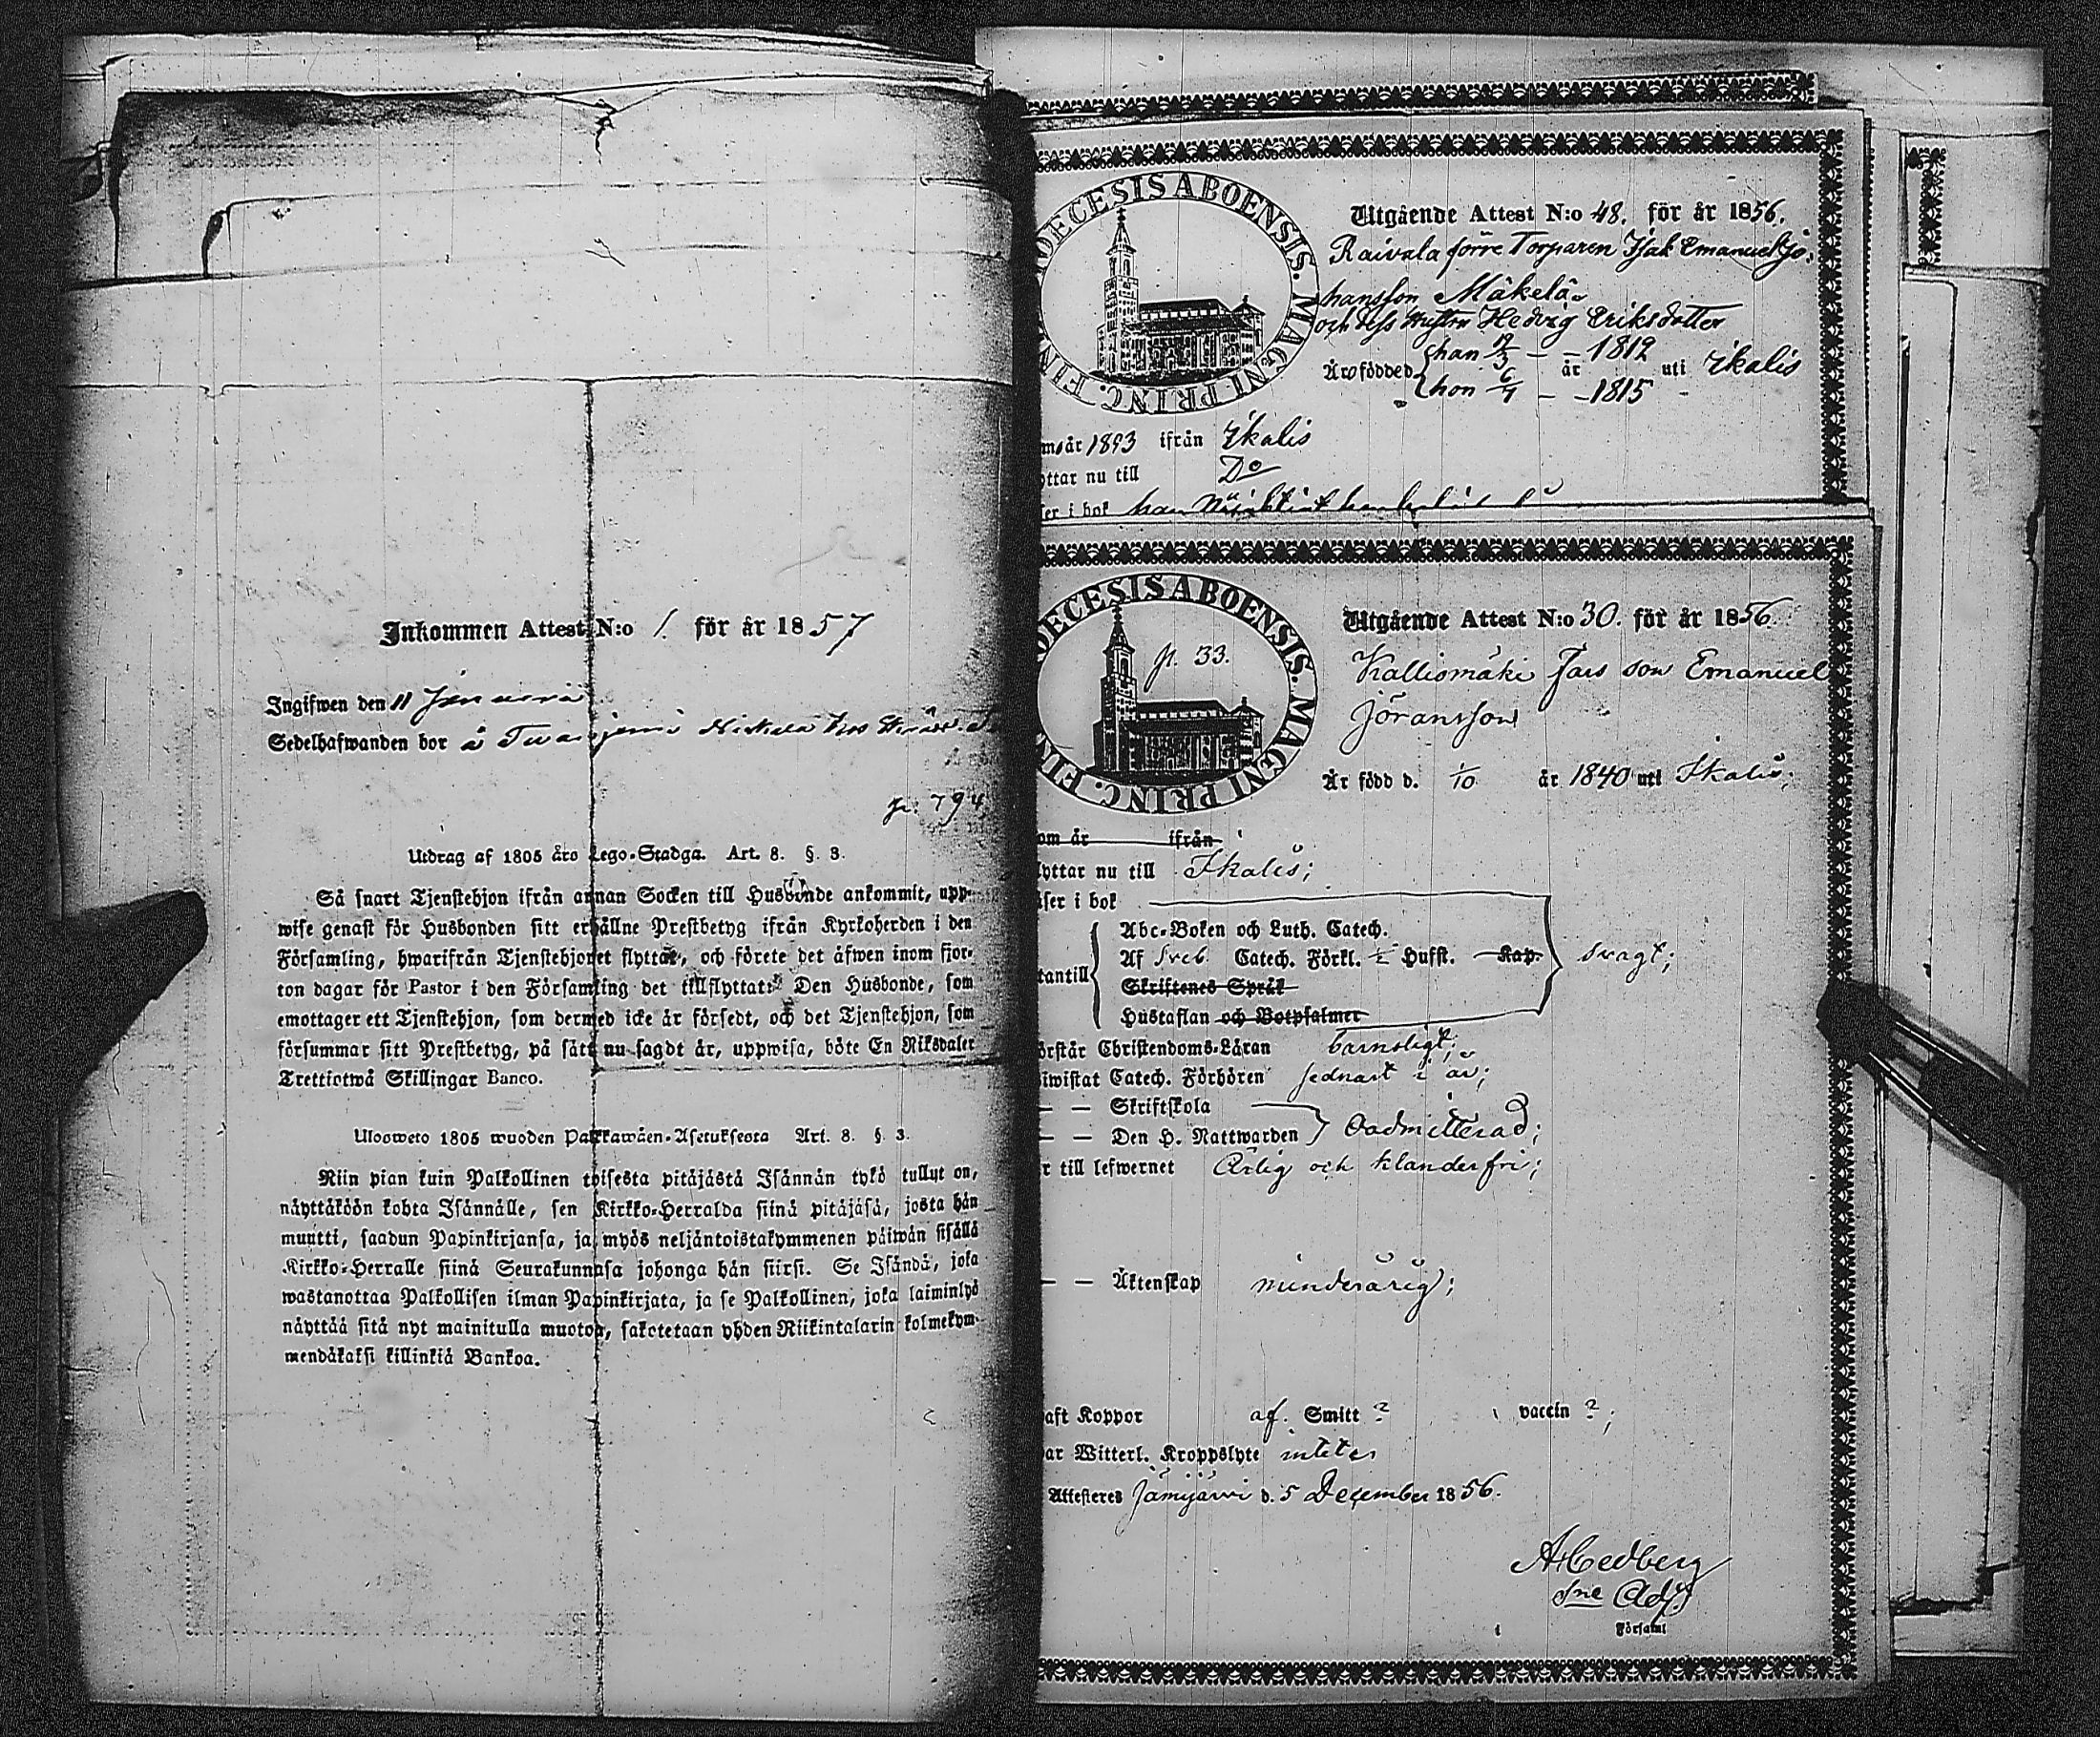 Inkommen Attest N:o 1. för år 1857
Ingifwen den 11 Januari
Sedelhafwanden bor å
p. 794
Utdrag af 1805 års Lego-Stadga. Art. 8. §. 3.
Så snart Tjenstehjon ifrån annan Socken till Husbonde ankommit, upp-
wise genast för Husbonden sitt erhållne Prestbetyg ifrån Kyrkoherden i den
Församling, hwarifrån Tjenstehjonet flyttat, och förete det äfwen inom fjor-
ton dagar för Pastor i den Församling det tillflyttat. Den Husbonde, som
emottager ett Tjenstehjon, som dermed icke är försedt, och det Tjenstehjon, som
försummar sitt Prestbetyg, på sätt nu sagdt är, uppwisa, böte En Riksdaler
Trettiotwå Skillingar Banco.
Ulosweto 1805 wuoden Palkkawäen-Asetuksesta Art. 8. §. 3.
Niin pian kuin Palkollinen toisesta pitäjästä Isännän tykö tullut on,
näyttäköön kohta Isännälle, sen Kirkko-Herralda siinä pitäjäsä, josta hän
muutti, saadun Papinkirjansa, ja myös neljäntoistakymmenen päiwän sisällä
Kirkko-Herralle siinä Seurakunnasa johonga hän siirsi. Se Isändä, joka
wastanottaa Palkollisen ilman Papinkirjata, ja se Palkollinen, joka laiminlyö
näyttää sitä nyt mainitulla muoton, sakotetaan yhden Riikintalarin kolmekym-
mendäkaksi killinkiä Bankoa.
DECESIS ABOENSIS. MAGNI PRINC. FIN
Utgående Attest N:o 48. för år 1856.
Raivala förre Torparen Isak Emanuel Jo-
hansson Mäkelä
och dess Hustru Hedvig Eriksdotter
Äro födde d. han 19/3 — — 1812 år uti Ikalis
hon 6/7 — — 1815
om år 1893 ifrån Ikalis
yttar nu till Do
ser i bok han
DECESIS ABOENSIS. MAGNI PRINC. FIN
p. 33.
Utgående Attest N:o 30. för år 1856.
Kalliomäki Jars son Emanuel
Jöransson
Är född d. 1/10 år 1840 uti Ikalis;
om år ifrån
yttar nu till Ikalis;
äser i bok
Abc-Boken och Luth. Catech.
Af Sveb. Catech. Förkl. ½ Husst. Kap.
tantill svagt;
Skriftenes Språk
Hustaflan och Botpsalmer
örstår Christendoms-Läran barnsligt;
iwistat Catech. Förhören sednast i år;
— — Skriftskola
— — Den H. Nattwarden oadmitterad;
r till lefwernet Ärlig och klanderfri;
— — Äktenskap minderårig;
aft Koppor af. Smitt ? vaccin ?;
ar Witterl. Kroppslyte intet
Attesteres Jämijärvi d. 5 December 1856.
A Cedberg
Sne Adj.
Församl